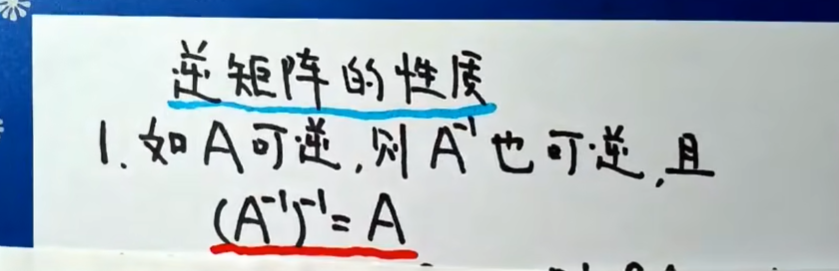 逆矩阵的性质
1. 如A可逆,则A⁻¹也可逆,且
(A⁻¹)⁻¹=A